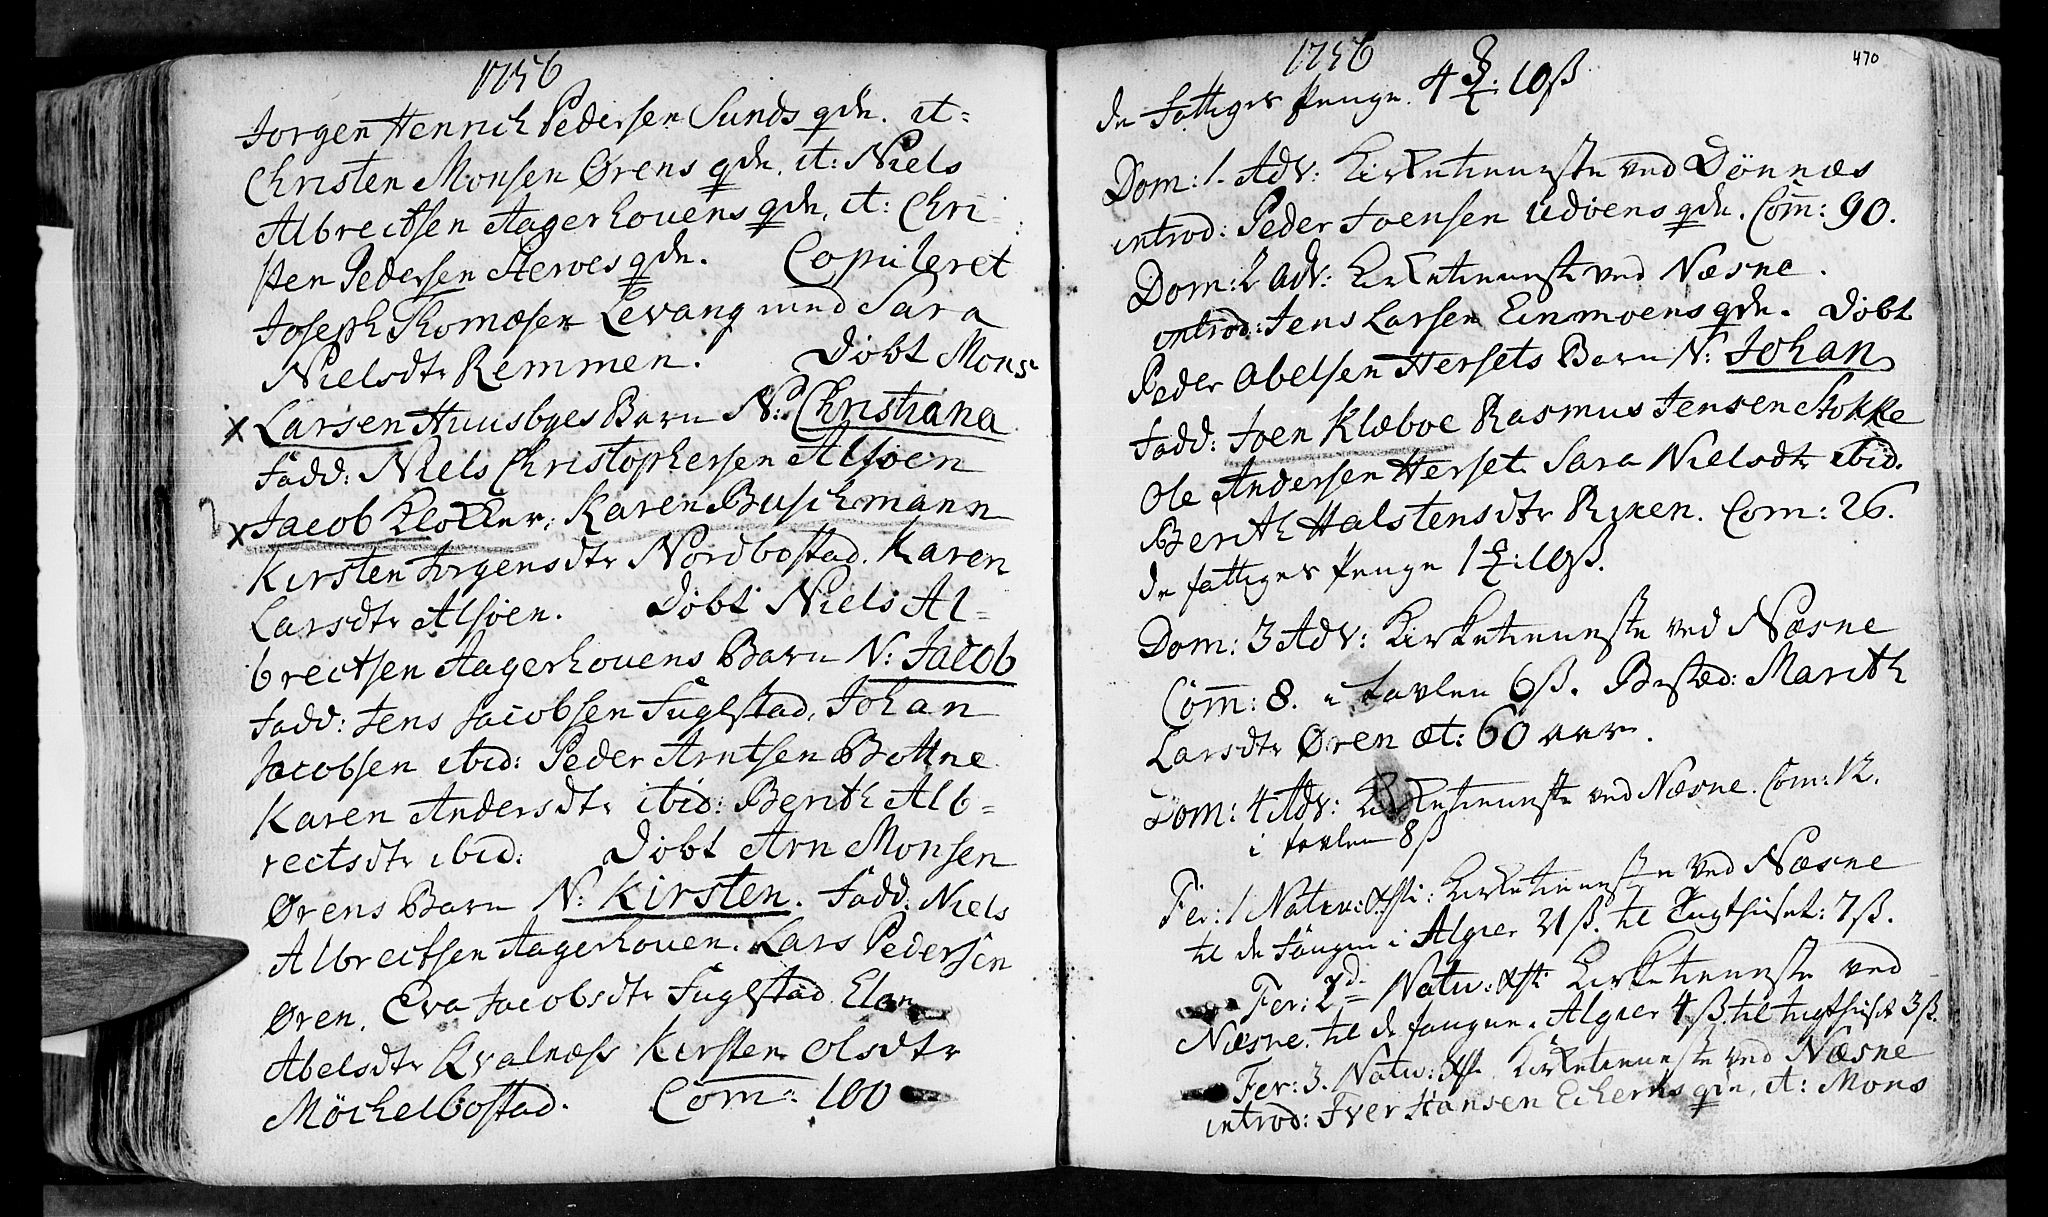 1756
Jorgen Henrich Pedersen Sunds qde. it=
Christen Monsen Ørens qde. it: Niels
Albrectsen Aagerhouens qde. it: Chri=
sten Pedersen qde. Copuleret
Joseph Thomæsen Levang med Sara
Nielsdtr Remmen. Døbt Mons
x Larsen Huusbyes Barn N: Christiana
Fadd: Niels Christophersen Alsøen
x Jacob Klokker, Karen Buschmann
Kirsten Jorgensdtr Nordbostad. Karen
Larsdtr Alsøen. Døbt Niels Al=
brectsen Aagerhouens Barn N: Jacob
Fadd: Jens Jacobsen Fuglstad, Johan
Jacobsen ibid: Peder Arntsen Bottne
Karen Andersdtr ibid: Berith Alb=
rectsdtr ibid: Døbt Arn Monsen
Ørens Barn N: Kirsten. Fadd: Niels
Albrectsen Aagerhouen. Lars Pedersen
Øren. Eva Jacobsdtr Fuglstad. Elen
Abelsdtr Qvalness Kirsten Olsdtr
Möchelbostad. Com: 100
1756
470
de fattiges Penge. 4 10ß
Dom: 1. Adv: Kirketieneste ved Dönnæs
introd: Peder Joensen Udöens qde. Com: 90.
Dom: 2 Adv: Kirketieneste ved Næsne.
introd: Jens Larsen Einmoens qde. Döbt
Peder Abelsen Hersets Barn N: Johan
Fadd: Joen Klæboe Rasmus Jensen Stokke
Ole Andersen Herset. Sara Nielsdtr ibid.
Berith Halstensdtr Riken. Com: 26.
de fattiges Penge 1 10ß.
Dom: 3 Adv: Kirketieneste ved Næsne
Com: 8. i tavlen 6ß. Bested: Marith
Larsdtr Øren æt: 60 aar.
Dom: 4 Adv: Kirketieneste ved Næsne. Com: 12.
i tavlen 8ß
Fer: 1 Nativ: Xsti: Kirketieneste ved Næsne
til de fangne i Algier 21ß. til Tugthuset: 7ß.
Fer: 2d Nativ: Xsti Kirketieneste ved
Næsne. til de fangne i Algier 4ß. til tugthuset 3ß.
Fer: 3. Nativ: Xsti Kirketieneste ved Næsne
introd: Iver Hansen qde. it: Mons